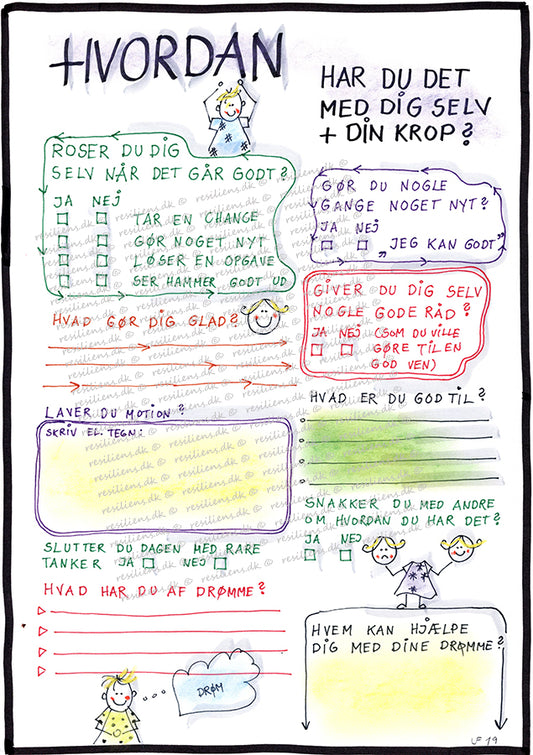 HVORDAN
HAR DU DET
MED DIG SELV
+ DIN KROP?
ROSER DU DIG
SELV NÅR DET GÅR GODT?
JA NEJ
TAR EN CHANGE
GØR NOGET NYT
LØSER EN OPGAVE
SER HAMMER GODT UD
GØR DU NOGLE
GANGE NOGET NYT?
JA NEJ
„JEG KAN GODT”
HVAD GØR DIG GLAD?
GIVER DU DIG SELV
NOGLE GODE RÅD?
JA NEJ (SOM DU VILLE
GØRE TIL EN
GOD VEN)
LAVER DU MOTION?
SKRIV EL. TEGN:
HVAD ER DU GOD TIL?
SNAKKER DU MED ANDRE
OM HVORDAN DU HAR DET?
JA NEJ
SLUTTER DU DAGEN MED RARE
TANKER JA NEJ
HVAD HAR DU AF DRØMME?
DRØM
HVEM KAN HJÆLPE
DIG MED DINE DRØMME?
LF 19
resiliens.dk ©